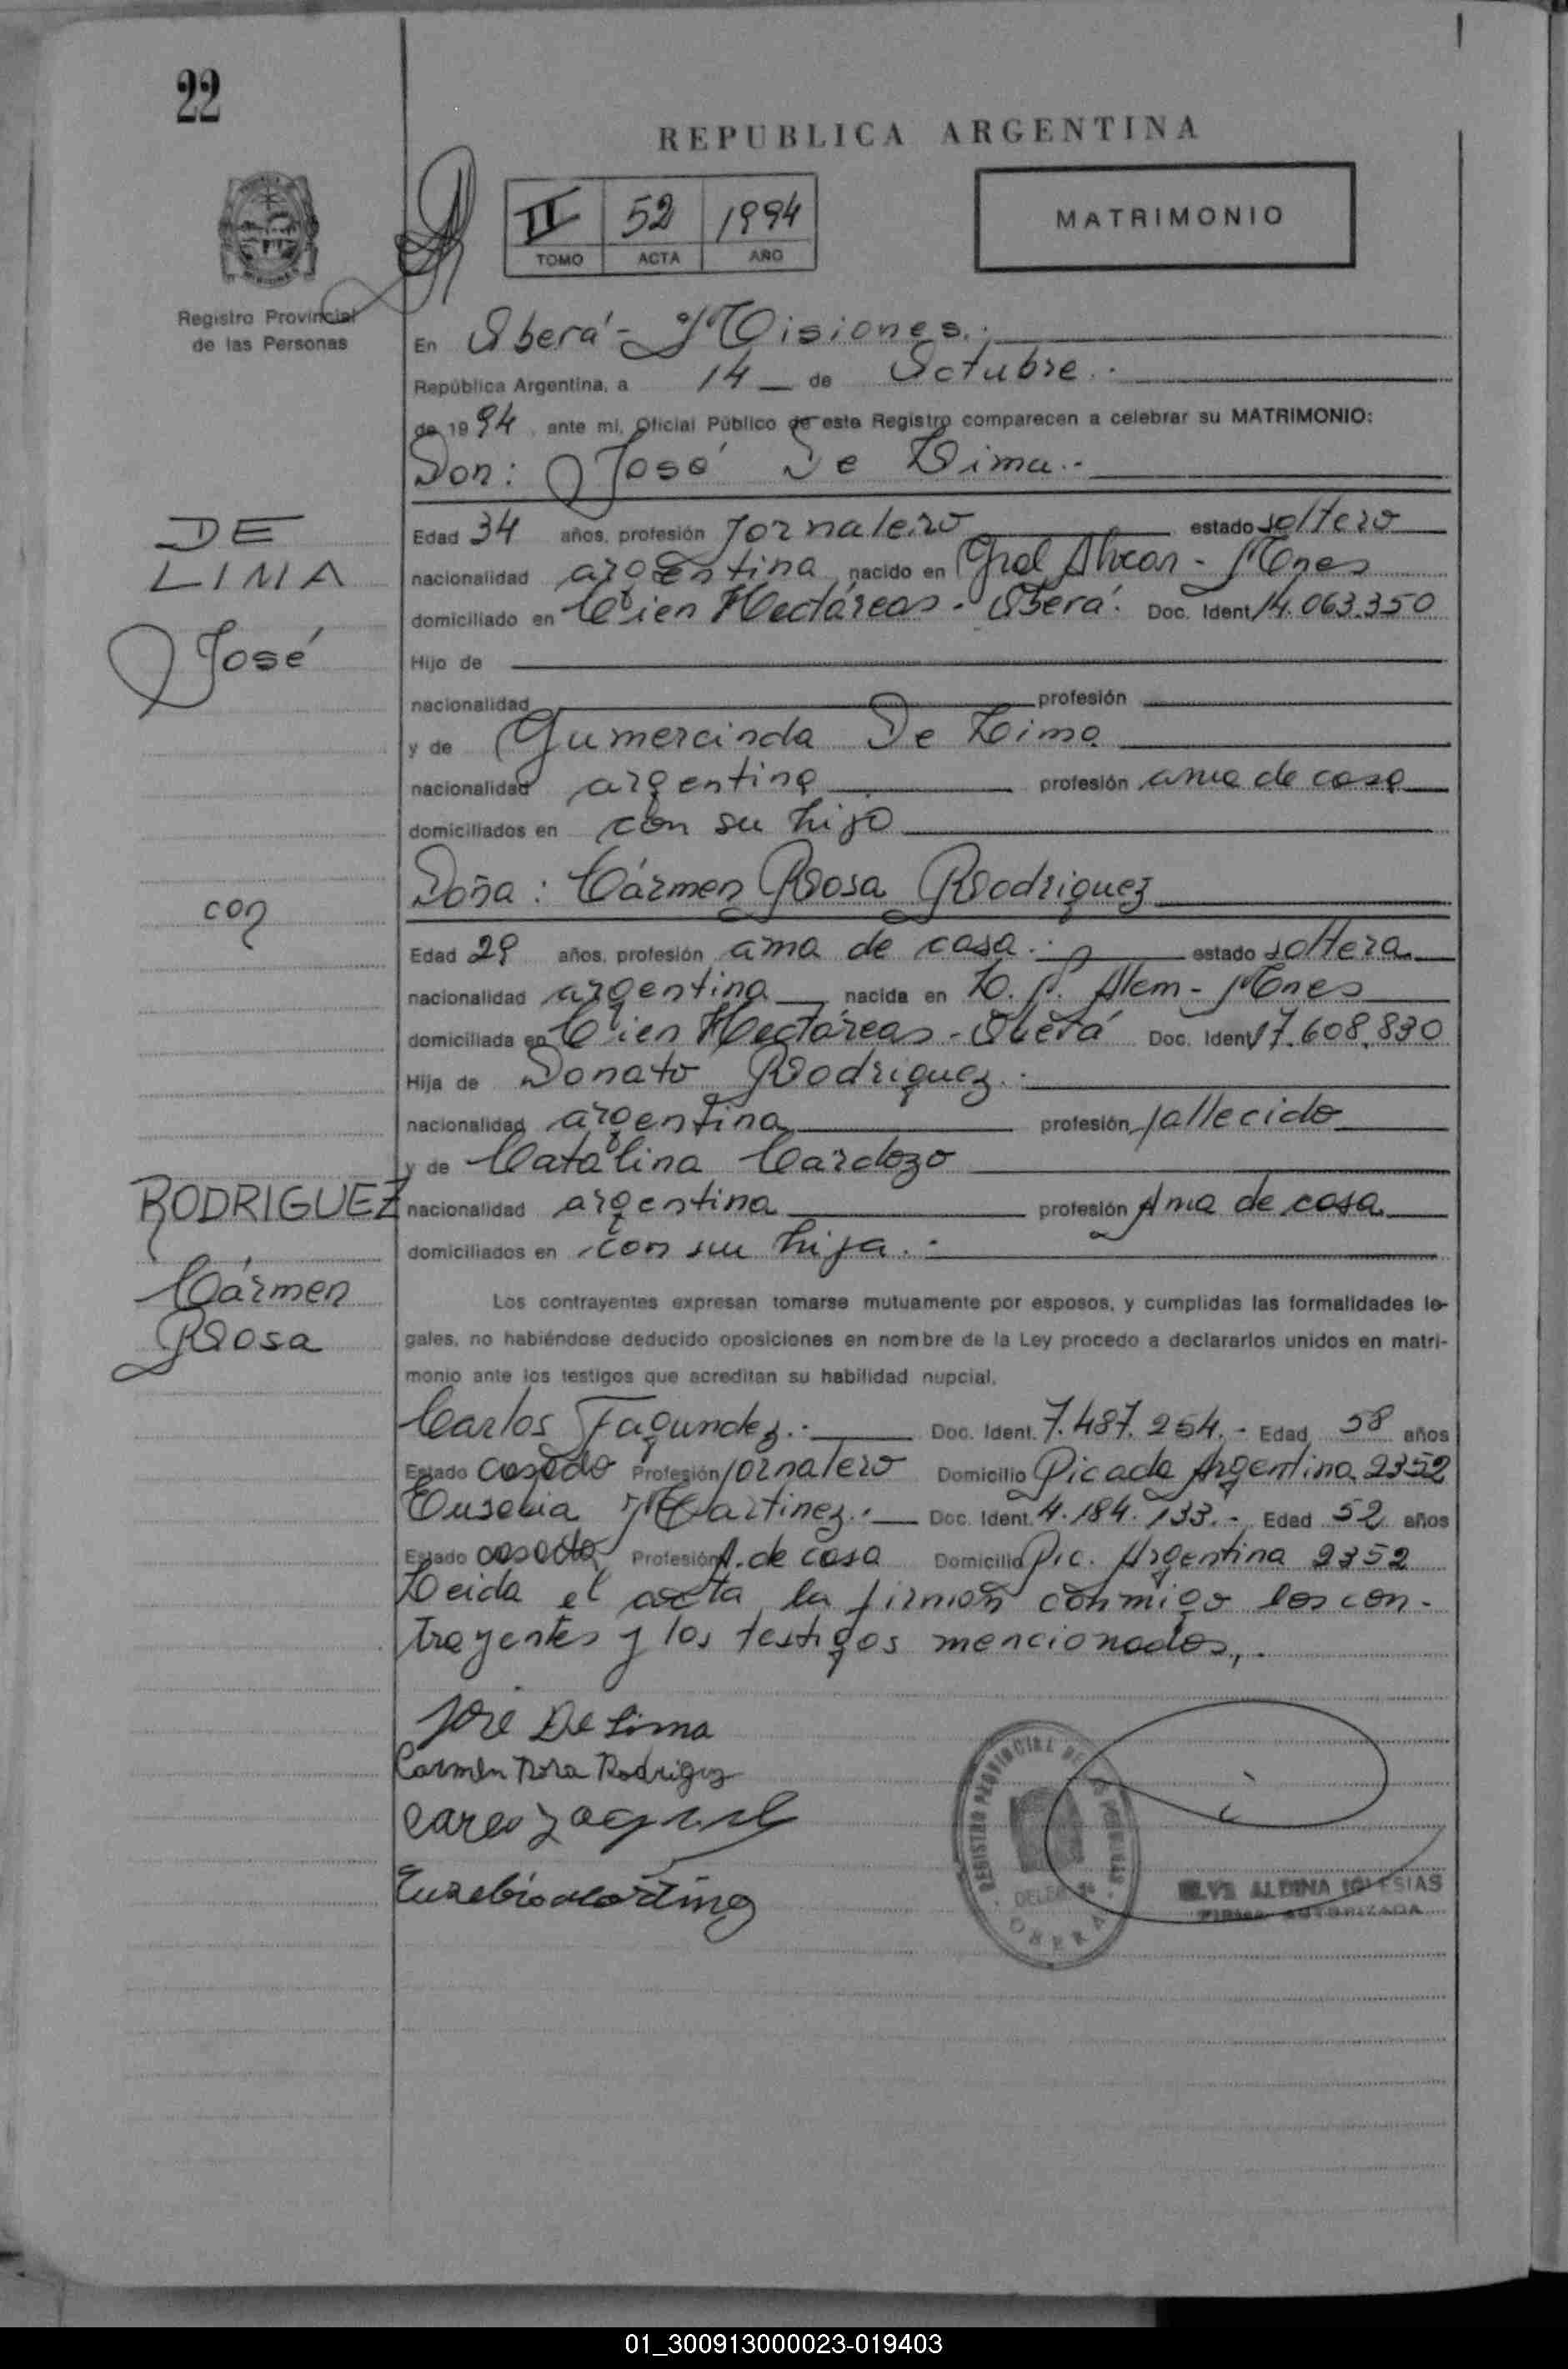 22
REPUBLICA ARGENTINA
II 52 1994
TOMO ACTA AÑO
MATRIMONIO
Registro Provincial
de las Personas
En Oberá - Misiones.
República Argentina, a 14 de Octubre.
de 1994, ante mí, Oficial Público de este Registro comparecen a celebrar su MATRIMONIO:
Don: José De Lima.-
DE
LIMA
José
Edad 34 años, profesión Jornalero estado soltero
nacionalidad argentina nacido en Gral Alvear - Mnes
domiciliado en Cien Hectáreas - Oberá. Doc. Ident. 14.063.350
Hijo de
nacionalidad profesión
y de Gumercinda De Lima
nacionalidad argentina profesión ama de casa
domiciliados en con su hijo
Doña: Cármen Rosa Rodriguez
con
Edad 29 años, profesión ama de casa.- estado soltera
nacionalidad argentina nacida en L. N. Alem - Mnes
domiciliada en Cien Hectáreas - Oberá Doc. Ident. 17.608.830
Hija de Donato Rodriguez.-
nacionalidad argentina profesión fallecido
y de Catalina Cardozo
RODRIGUEZ
Cármen
Rosa
nacionalidad argentina profesión Ama de casa
domiciliados en con su hija.-
Los contrayentes expresan tomarse mutuamente por esposos, y cumplidas las formalidades le-
gales, no habiéndose deducido oposiciones en nombre de la Ley procedo a declararlos unidos en matri-
monio ante los testigos que acreditan su habilidad nupcial.
Carlos Fagundez.- Doc. Ident. 7.487.254.- Edad 58 años
Estado casado Profesión jornalero Domicilio Picada Argentina 2352
Eusebia Martinez.- Doc. Ident. 4.184.133.- Edad 52 años
Estado casada Profesión A. de casa Domicilio Pic. Argentina 2352
Leida el acta la firman conmigo los con-
trayentes y los testigos mencionados,.-
José De Lima
Carmen Rosa Rodriguz
REGISTRO PROVINCIAL DE LAS PERSONAS
OBERA
ALDINA IGLESIAS
FIRMA AUTORIZADA
01_300913000023-019403